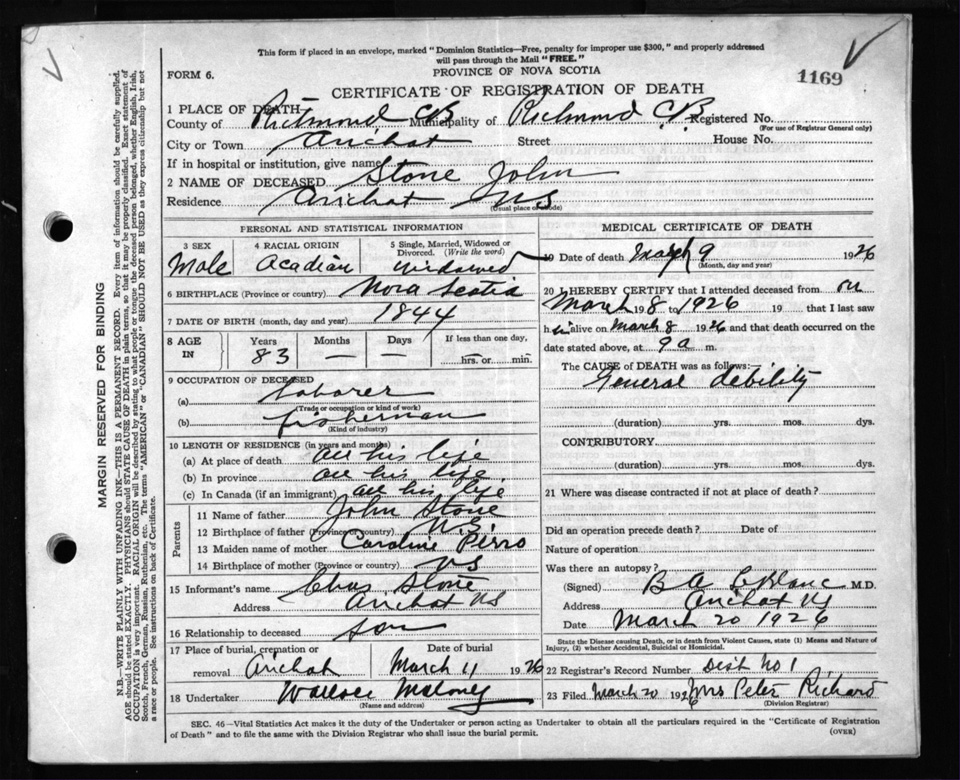 This form if placed in an envelope, marked "Dominion Statistics—Free, penalty for improper use $300," and properly addressed
will pass through the Mail "FREE."
FORM 6. PROVINCE OF NOVA SCOTIA 1169
CERTIFICATE OF REGISTRATION OF DEATH
1 PLACE OF DEATH
County of Richmond CB Municipality of Richmond C.B. Registered No.
(For use of Registrar General only)
City or Town Arichat Street House No.
If in hospital or institution, give name
2 NAME OF DECEASED Stone John
Residence Arichat NS
(Usual place of abode)
PERSONAL AND STATISTICAL INFORMATION
3 SEX 4 RACIAL ORIGIN 5 Single, Married, Widowed or Divorced. (Write the word)
Male Acadian Widowed
6 BIRTHPLACE (Province or country) Nova Scotia
7 DATE OF BIRTH (month, day and year) 1844
8 AGE IN Years Months Days If less than one day,
83 — — hrs. or min.
9 OCCUPATION OF DECEASED
(a) Laborer
(Trade or occupation or kind of work)
(b) fisherman
(Kind of industry)
10 LENGTH OF RESIDENCE (in years and months)
(a) At place of death all his life
(b) In province all his life
(c) In Canada (if an immigrant) all his life
Parents
11 Name of father John Stone
12 Birthplace of father (Province or country) N.S.
13 Maiden name of mother Caroline Perro
14 Birthplace of mother (Province or country) NS
15 Informant's name Chas Stone
Address Arichat NS
16 Relationship to deceased son
17 Place of burial, cremation or Date of burial
removal Arichat March 11 1926
18 Undertaker Wallace Maloney
(Name and address)
MEDICAL CERTIFICATE OF DEATH
19 Date of death March 9 1926
(Month, day and year)
20 I HEREBY CERTIFY that I attended deceased from on
March 8 1926 19 that I last saw
him alive on March 8 1926 and that death occurred on the
date stated above, at 9 a m.
The CAUSE of DEATH was as follows:—
General debility
(duration) yrs. mos. dys.
CONTRIBUTORY
(duration) yrs. mos. dys.
21 Where was disease contracted if not at place of death?
Did an operation precede death? Date of
Nature of operation
Was there an autopsy?
(Signed) B A LeBlanc M.D.
Address Arichat NS
Date March 20 1926
State the Disease causing Death, or in death from Violent Causes, state (1) Means and Nature of
Injury, (2) whether Accidental, Suicidal or Homicidal.
22 Registrar's Record Number Dist No 1
23 Filed March 20 1926 Mrs Peter Richard
(Division Registrar)
SEC. 46—Vital Statistics Act makes it the duty of the Undertaker or person acting as Undertaker to obtain all the particulars required in the "Certificate of Registration
of Death" and to file the same with the Division Registrar who shall issue the burial permit. (OVER)
MARGIN RESERVED FOR BINDING
N.B.—WRITE PLAINLY WITH UNFADING INK—THIS IS A PERMANENT RECORD. Every item of information should be carefully supplied.
AGE should be stated EXACTLY. PHYSICIANS should STATE CAUSE OF DEATH in plain terms, so that it may be properly classified. Exact statement of
OCCUPATION is very important. RACIAL ORIGIN will be described by stating to what people or tongue the deceased person belonged, whether English, Irish,
Scotch, French, German, Russian, Ruthenian, etc. The terms "AMERICAN" or "CANADIAN" SHOULD NOT BE USED as they express citizenship but not
a race or people. See instructions on back of Certificate.